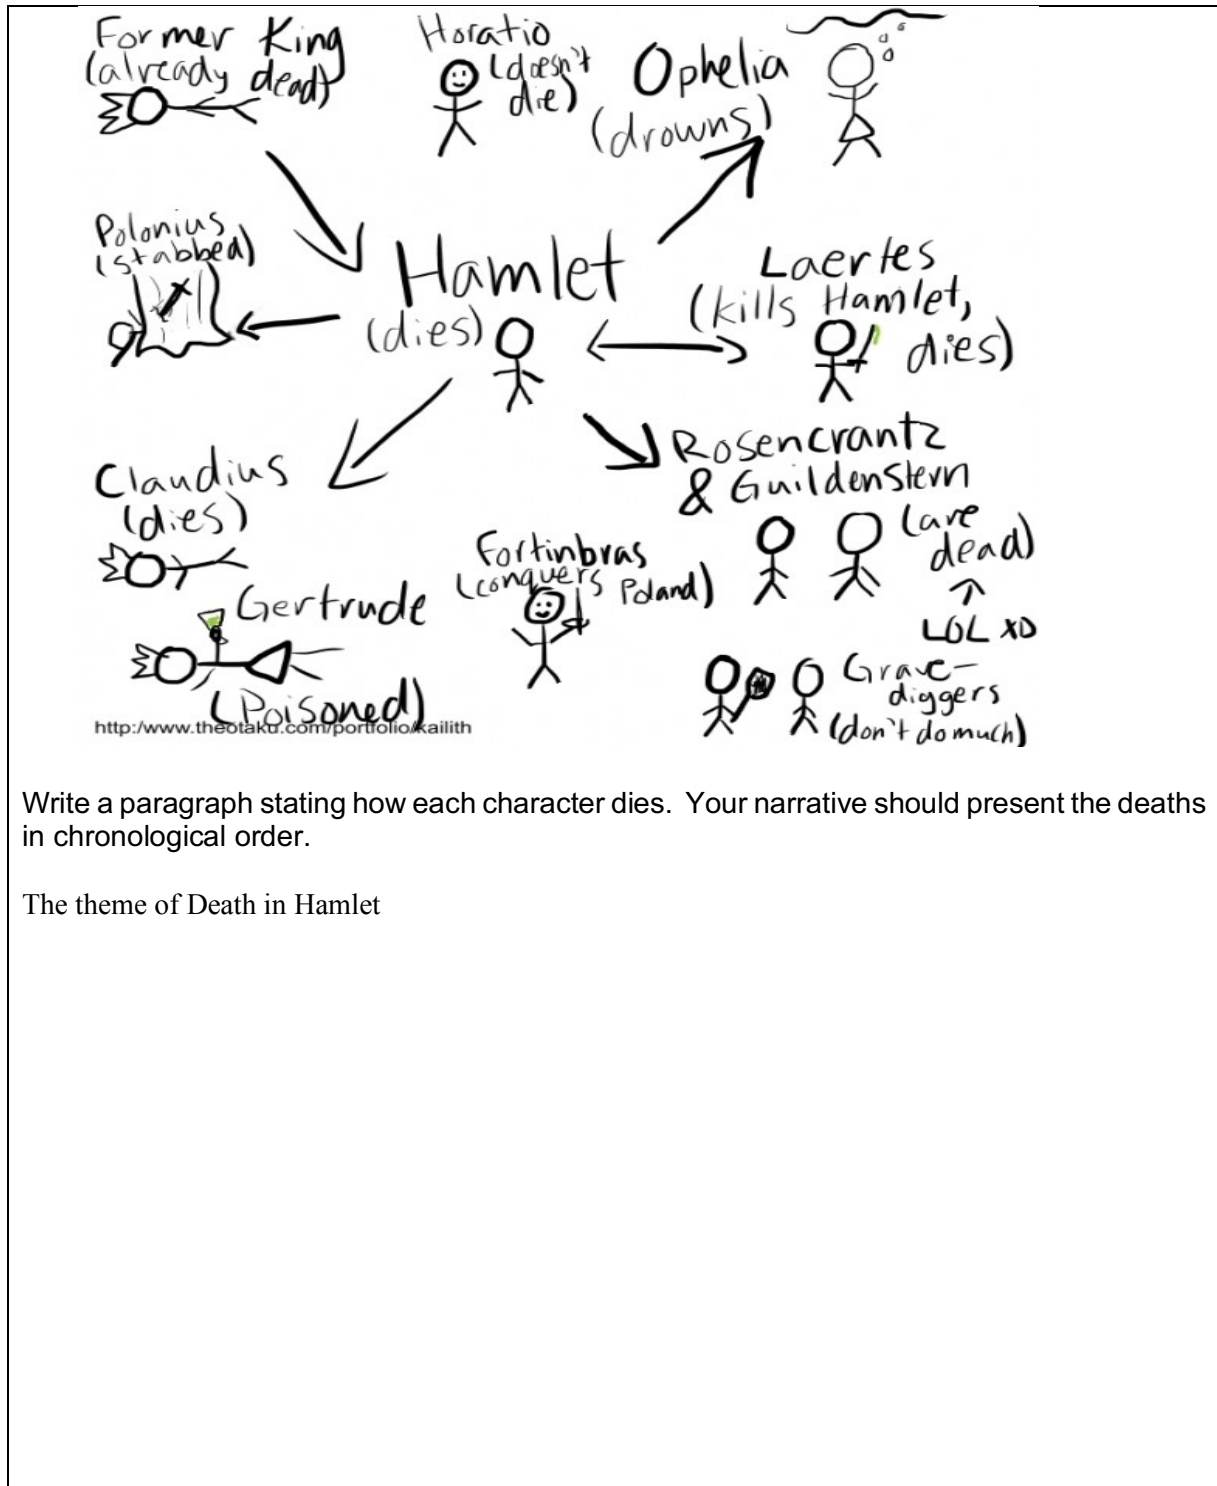 Former King
(already dead)
Horatio
(doesn't
die)
Ophelia
(drowns)
Polonius
(stabbed)
Hamlet
(dies)
Laertes
(kills Hamlet,
dies)
Claudius
(dies)
Rosencrantz
& Guildenstern
(are
dead)
LOL XD
Fortinbras
(conquers Poland)
Gertrude
(Poisoned)
Grave-
diggers
(don't do much)
http:/www.theotaku.com/portfolio/kailith
Write a paragraph stating how each character dies. Your narrative should present the deaths
in chronological order.
The theme of Death in Hamlet